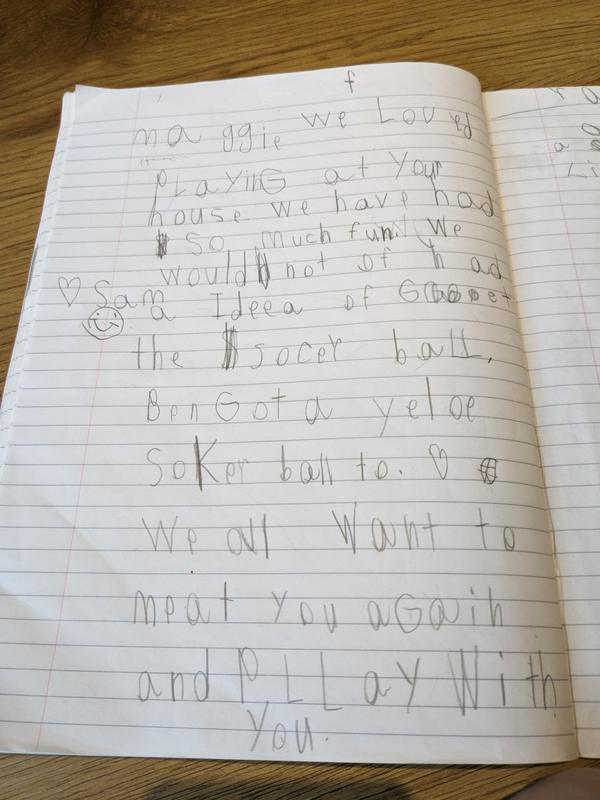 f
maggie we Loved
PLAYinG at Your
house we have had
so much fun. We
would not of had
♡ Sam
a Ideea of
the socer ball.
Ben Got a yeloe
SoKer ball to. ♡
We all Want to
meat you aGain
and PLLaY With
You.